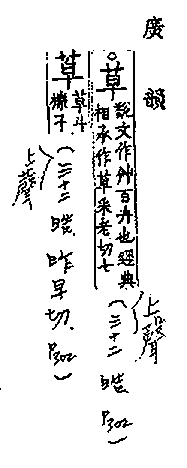 廣韻
草
說文作艸百卉也經典
相承作草采老切七
(上聲
三十二 晧 P302)
草
草斗
櫟子
(上聲
三十二 晧 昨早切. P302)